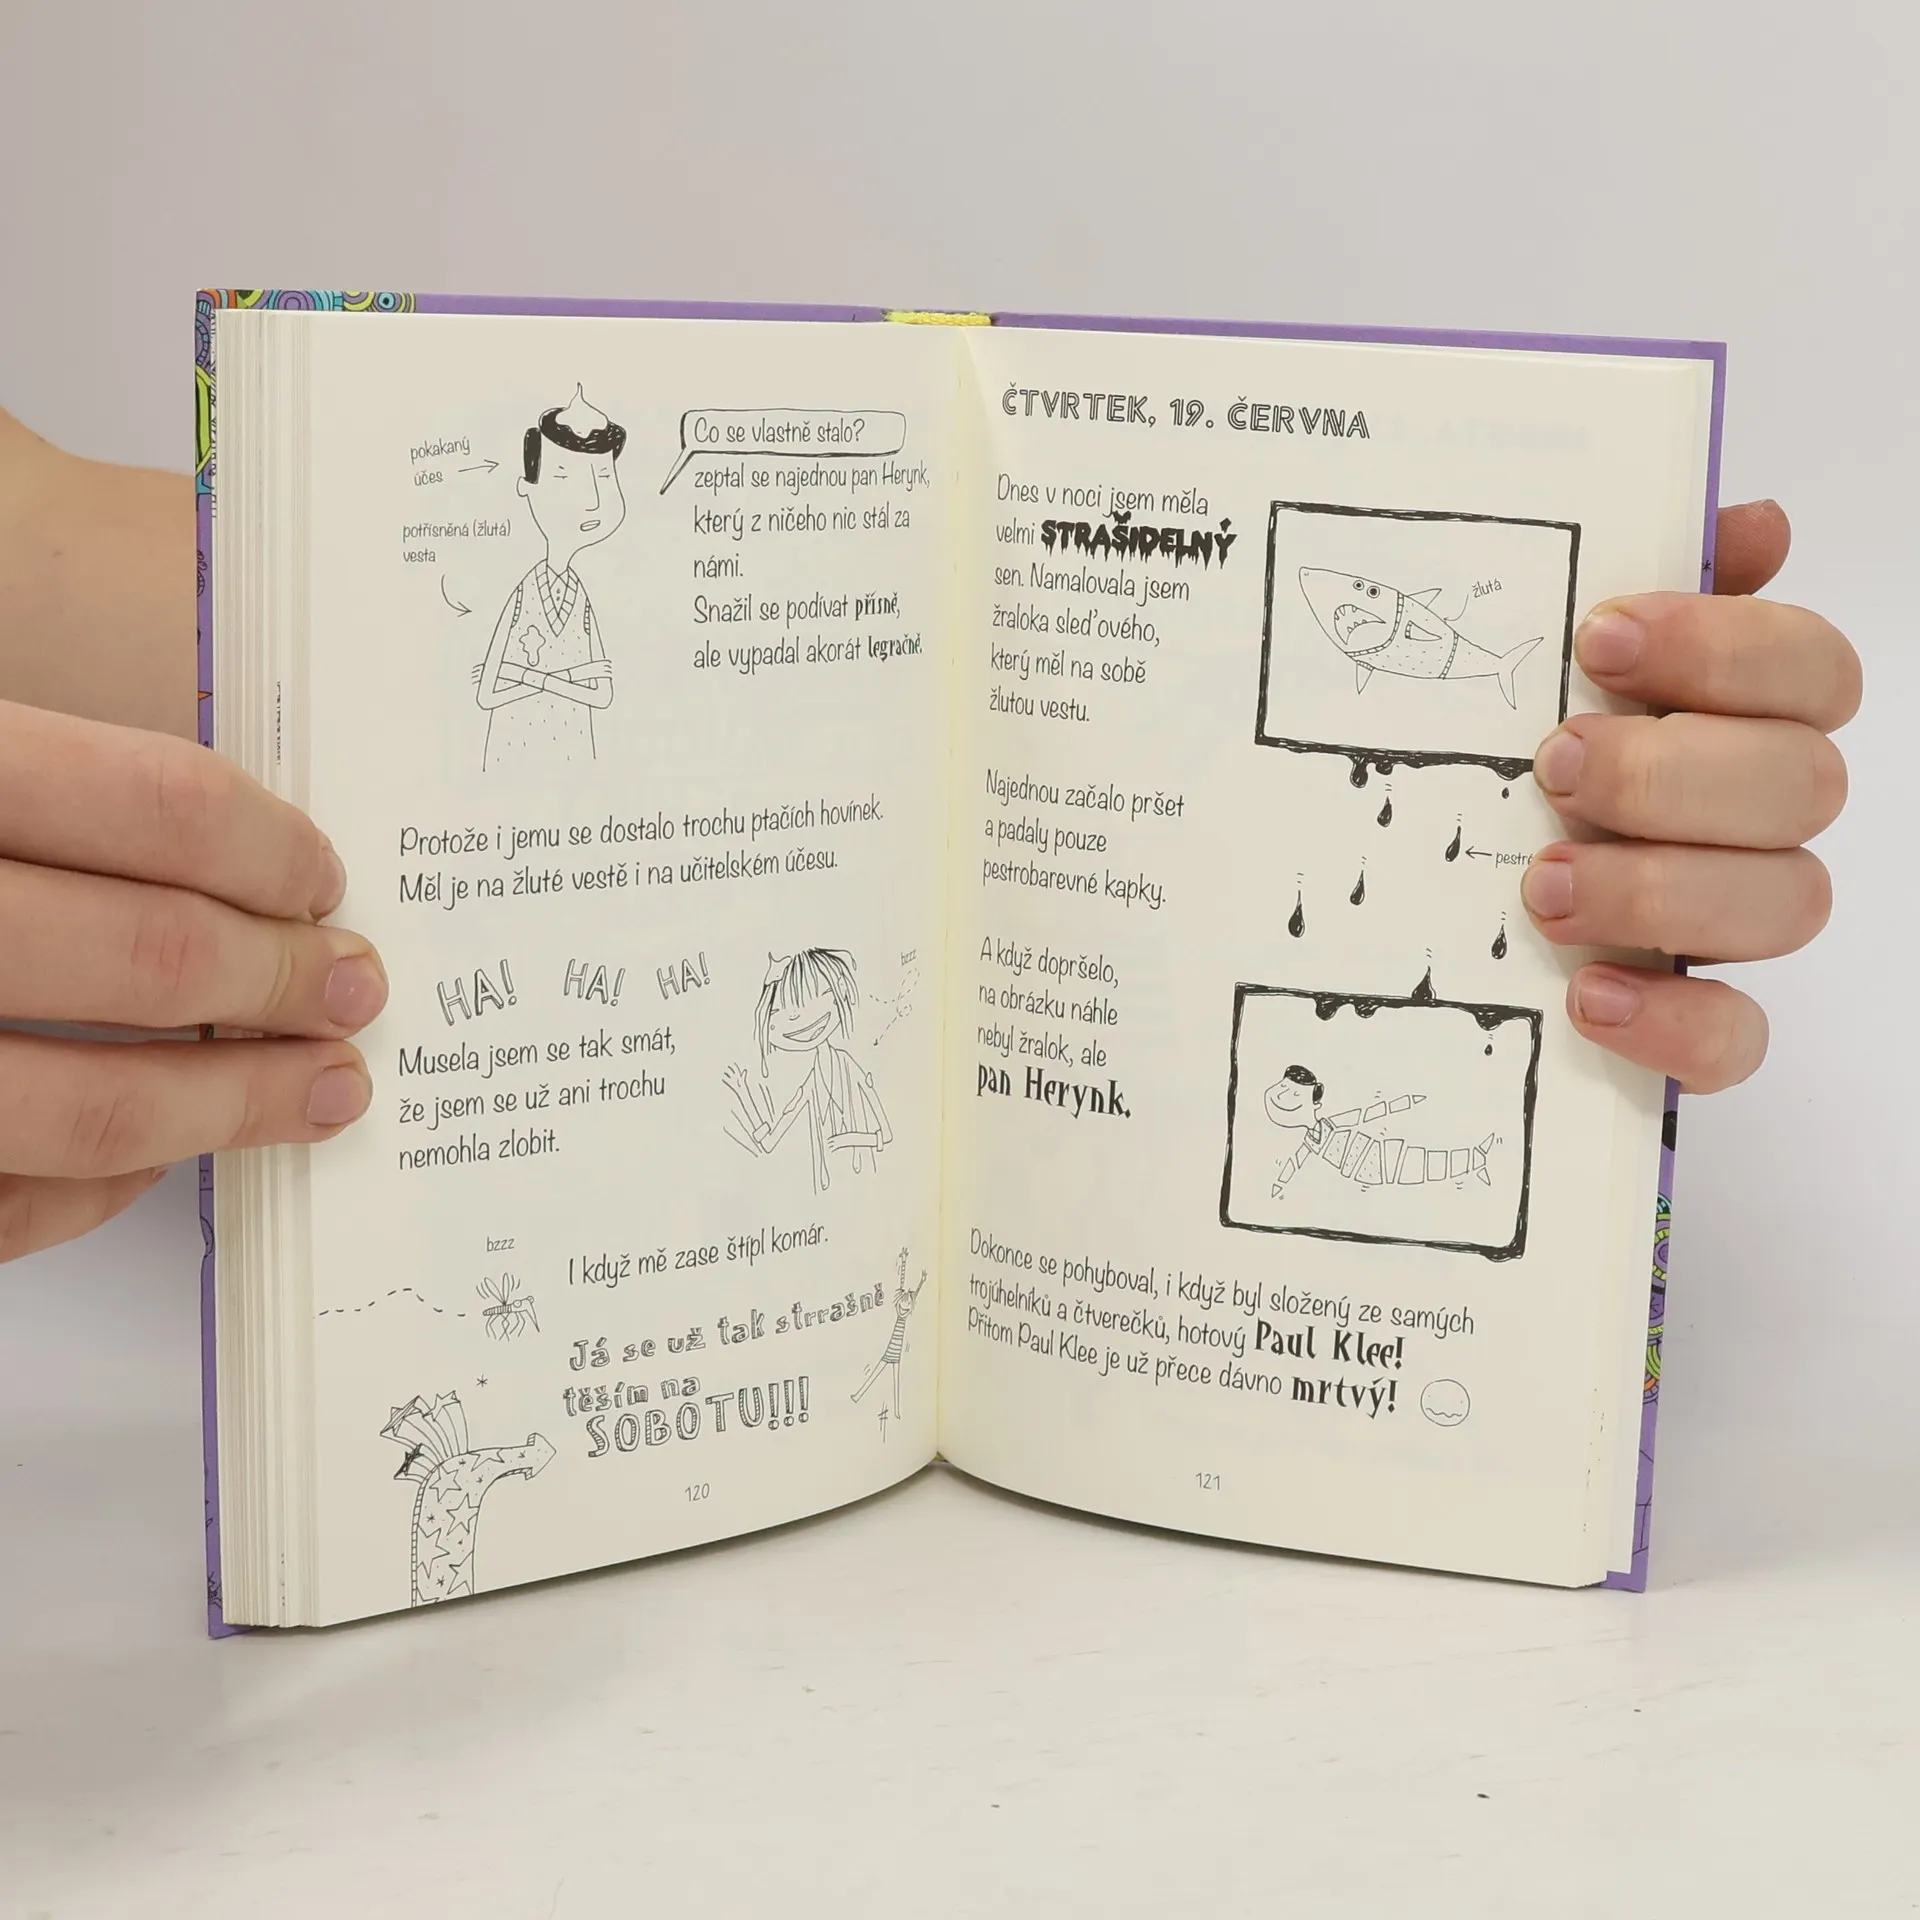 pokakaný
účes
potřísněná (žlutá)
vesta
Co se vlastně stalo?
zeptal se najednou pan Herynk,
který z ničeho nic stál za
námi.
Snažil se podívat přísně,
ale vypadal akorát legračně.
Protože i jemu se dostalo trochu ptačích hovínek.
Měl je na žluté vestě i na učitelském účesu.
HA! HA! HA!
bzzz
Musela jsem se tak smát,
že jsem se už ani trochu
nemohla zlobit.
bzzz
I když mě zase štípl komár.
Já se už tak strrašně
těším na
SOBOTU!!!
120
ČTVRTEK, 19. ČERVNA
Dnes v noci jsem měla
velmi STRAŠIDELNÝ
sen. Namalovala jsem
žraloka sleďového,
který měl na sobě
žlutou vestu.
žlutá
Najednou začalo pršet
a padaly pouze
pestrobarevné kapky.
A když dopršelo,
na obrázku náhle
nebyl žralok, ale
pan Herynk.
Dokonce se pohyboval, i když byl složený ze samých
trojúhelníků a čtverečků, hotový Paul Klee!
Přitom Paul Klee je už přece dávno mrtvý!
121